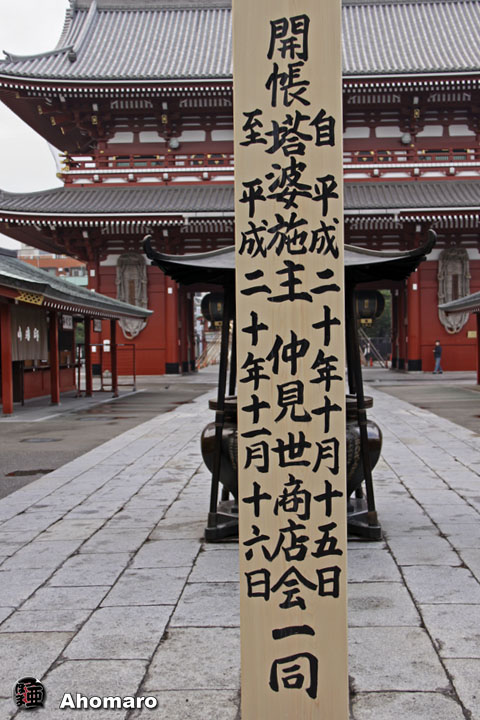 自 平成二十年十月十五日
開帳塔婆施主 仲見世商店会一同
至 平成二十年十一月十六日
Ahomaro